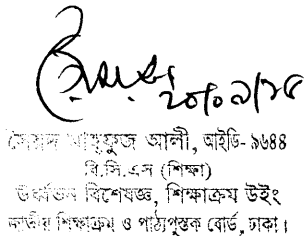 ২০/০৯/১৫
সৈয়দ মাহফুজ আলী, আইডি- ৯৬৪৪
বি.সি.এস (শিক্ষা)
ঊর্ধ্বতন বিশেষজ্ঞ, শিক্ষাক্রম উইং
জাতীয় শিক্ষাক্রম ও পাঠ্যপুস্তক বোর্ড, ঢাকা।